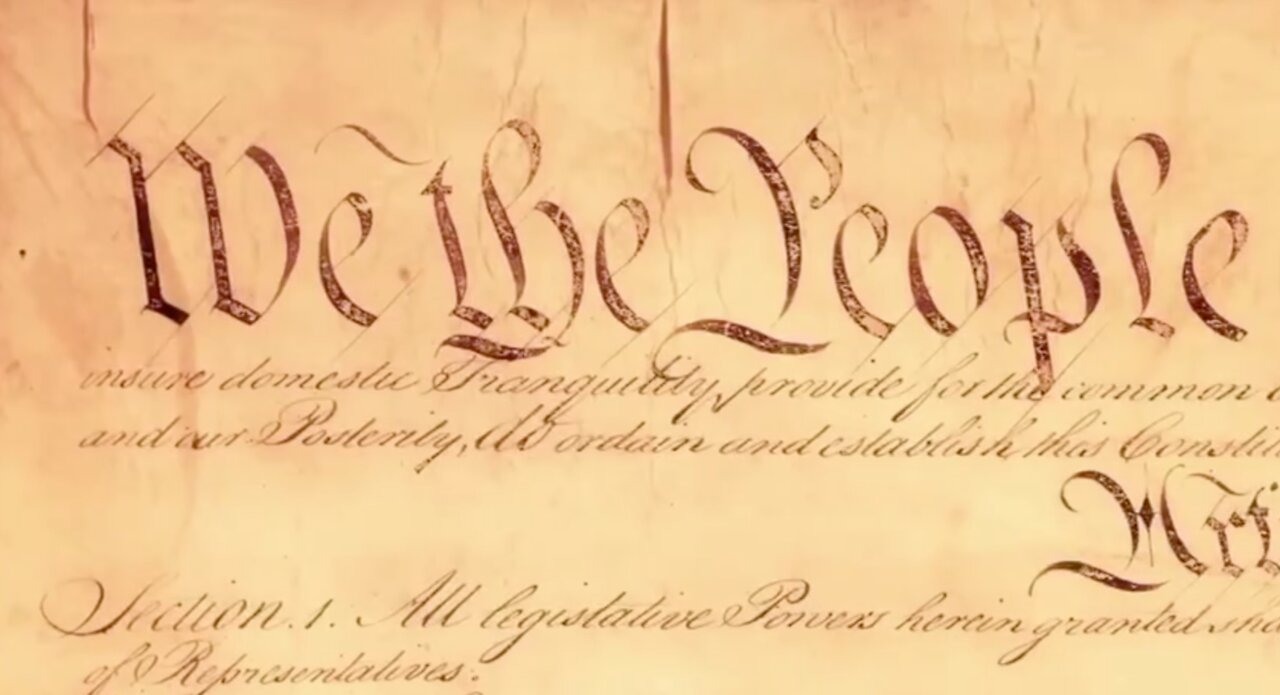 We the People
insure domestic Tranquility, provide for the common
and our Posterity, do ordain and establish this
Section. 1. All legislative Powers herein granted
of Representatives.